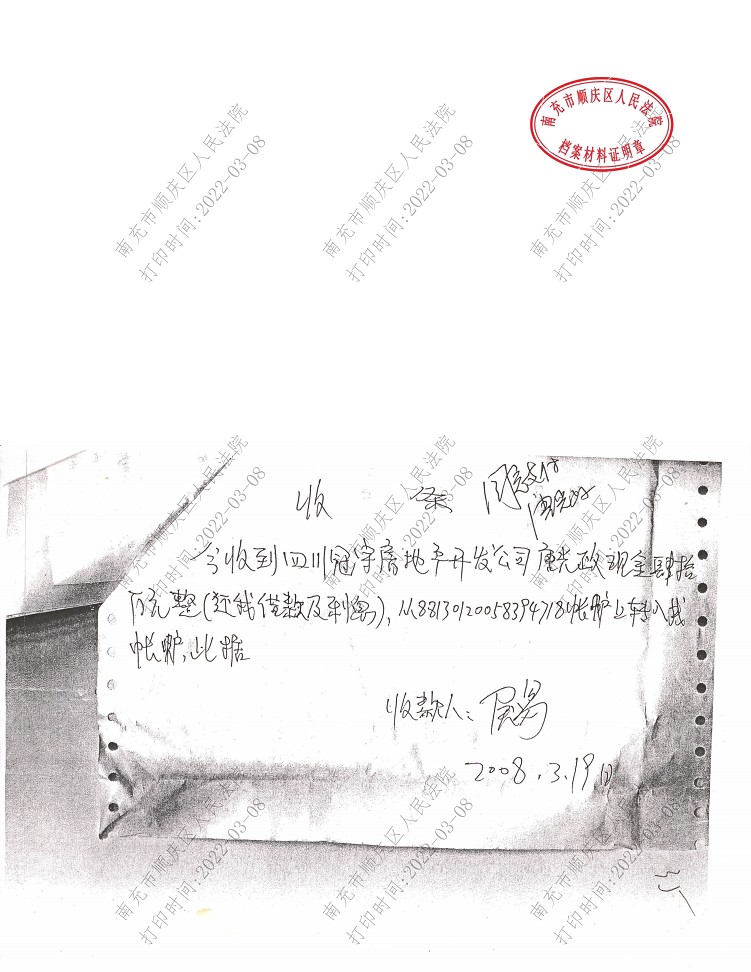 南充市顺庆区人民法院
档案材料证明章
南充市顺庆区人民法院
打印时间:2022-03-08
南充市顺庆区人民法院
打印时间:2022-03-08
南充市顺庆区人民法院
打印时间:2022-03-08
收 条
同意支付
今收到四川冠宇房地产开发公司唐光政现金肆拾
万元整(还我借款及利息),从8813012005839471帐户上转入我
帐户,此据
收款人:
2008.3.19日
南充市顺庆区人民法院
打印时间:2022-03-08
南充市顺庆区人民法院
打印时间:2022-03-08
南充市顺庆区人民法院
打印时间:2022-03-08
南充市顺庆区人民法院
打印时间:2022-03-08
南充市顺庆区人民法院
打印时间:2022-03-08
南充市顺庆区人民法院
打印时间:2022-03-08